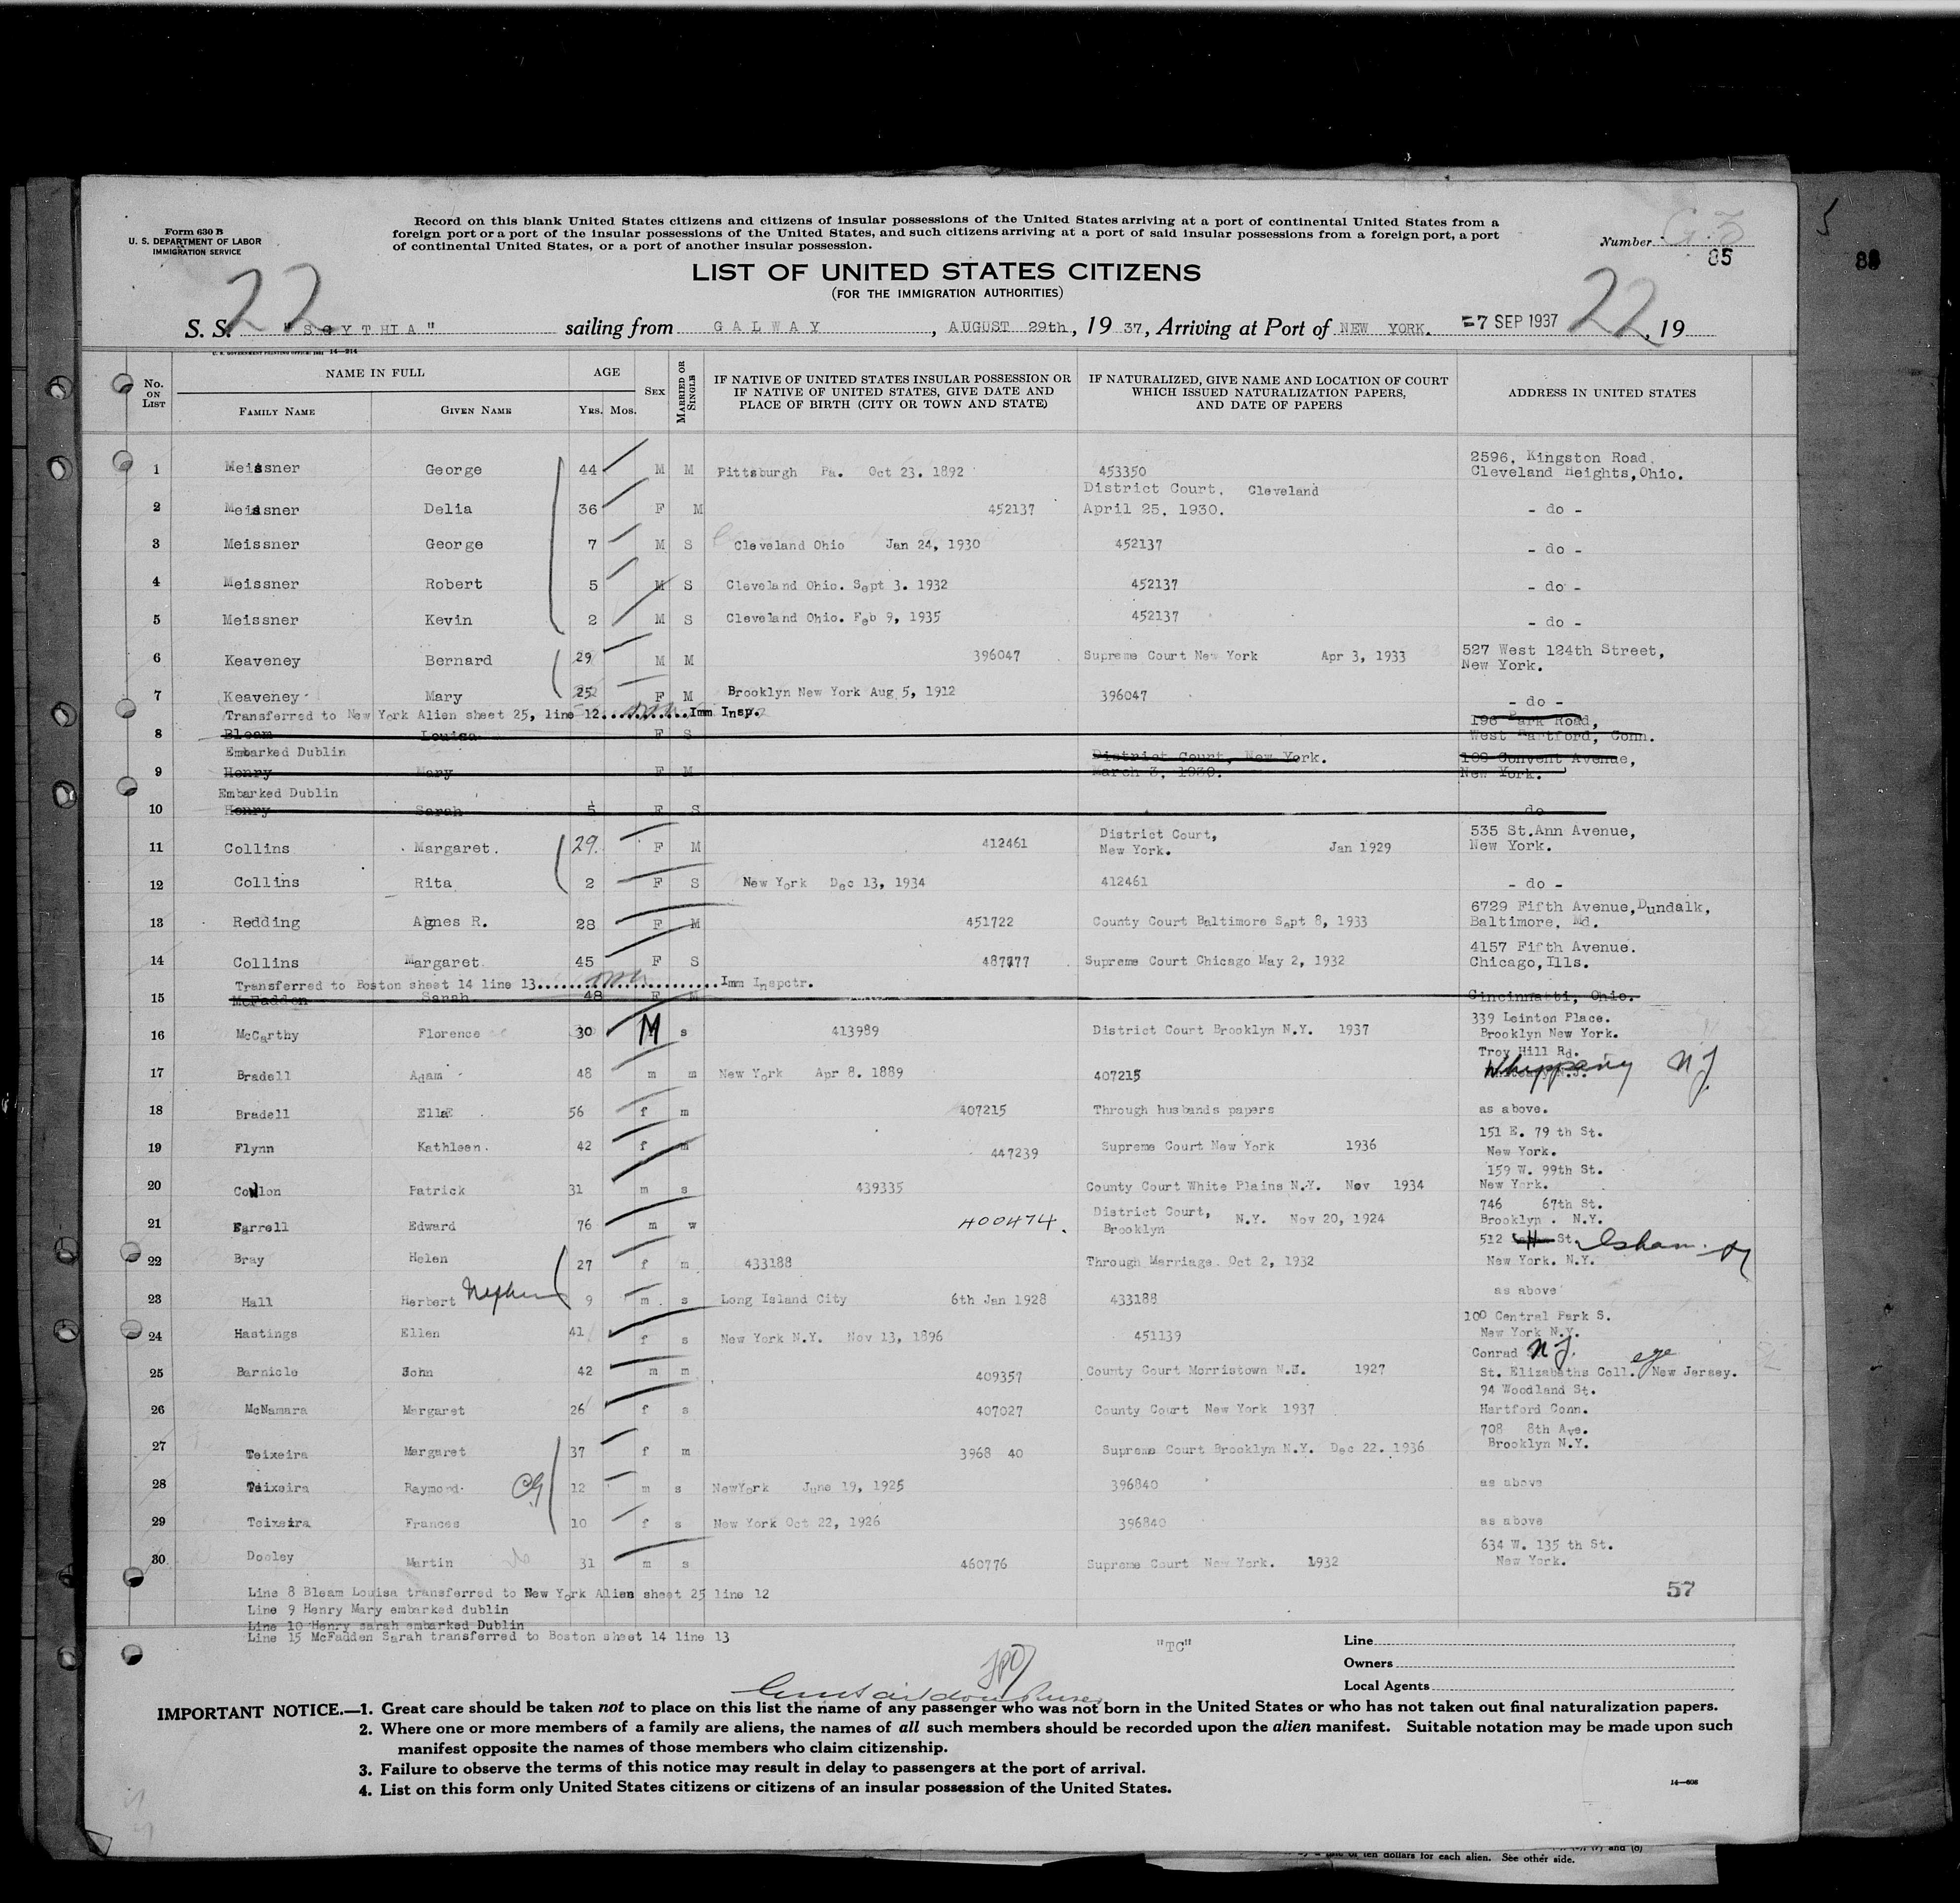 Form 630 B
U. S. DEPARTMENT OF LABOR
IMMIGRATION SERVICE
Record on this blank United States citizens and citizens of insular possessions of the United States arriving at a port of continental United States from a
foreign port or a port of the insular possessions of the United States, and such citizens arriving at a port of said insular possessions from a foreign port, a port
of continental United States, or a port of another insular possession.
Number
85
88
LIST OF UNITED STATES CITIZENS
(FOR THE IMMIGRATION AUTHORITIES)
22
22
S. S. "SCYTHIA" sailing from GALWAY, AUGUST 29th, 19 37, Arriving at Port of NEW YORK. -7 SEP 1937, 19
U. S. GOVERNMENT PRINTING OFFICE: 1931 14-214
No. ON LIST
NAME IN FULL
FAMILY NAME
GIVEN NAME
AGE
YRS. MOS.
SEX
MARRIED OR SINGLE
IF NATIVE OF UNITED STATES INSULAR POSSESSION OR
IF NATIVE OF UNITED STATES, GIVE DATE AND
PLACE OF BIRTH (CITY OR TOWN AND STATE)
IF NATURALIZED, GIVE NAME AND LOCATION OF COURT
WHICH ISSUED NATURALIZATION PAPERS,
AND DATE OF PAPERS
ADDRESS IN UNITED STATES
1 Meissner George 44 M M Pittsburgh Pa. Oct 23. 1892 453350 2596, Kingston Road, Cleveland Heights, Ohio.
2 Meissner Delia 36 F M 452137 District Court, Cleveland April 25, 1930. - do -
3 Meissner George 7 M S Cleveland Ohio Jan 24, 1930 452137 - do -
4 Meissner Robert 5 M S Cleveland Ohio. Sept 3. 1932 452137 - do -
5 Meissner Kevin 2 M S Cleveland Ohio. Feb 9, 1935 452137 - do -
6 Keaveney Bernard 29 M M 396047 Supreme Court New York Apr 3, 1933 527 West 124th Street, New York.
7 Keaveney Mary 25 F M Brooklyn New York Aug 5, 1912 396047 - do -
Transferred to New York Alien sheet 25, line 12...........Imm Insp.
8 Bleam Louisa F S 196 Park Road, West Hartford, Conn.
Embarked Dublin
9 Henry Mary F M District Court, New York. March 3, 1930. Convent Avenue, New York.
Embarked Dublin
10 Henry Sarah 5 F S do
11 Collins Margaret. 29 F M 412461 District Court, New York. Jan 1929 535 St.Ann Avenue, New York.
12 Collins Rita 2 F S New York Dec 13, 1934 412461 - do -
13 Redding Agnes R. 28 F M 451722 County Court Baltimore Sept 8, 1933 6729 Fifth Avenue, Dundalk, Baltimore, Md.
14 Collins Margaret 45 F S 487777 Supreme Court Chicago May 2, 1932 4157 Fifth Avenue. Chicago, Ills.
Transferred to Boston sheet 14 line 13......................Imm Inspctr.
15 McFadden Sarah 48 F M Cincinnatti, Ohio.
16 McCarthy Florence 30 M s 413989 District Court Brooklyn N.Y. 1937 339 Leinton Place. Brooklyn New York.
17 Bradell Adam 48 m m New York Apr 8. 1889 407215 Troy Hill Rd. Whippany N J
18 Bradell Ella 56 f m 407215 Through husbands papers as above.
19 Flynn Kathleen. 42 f m 447239 Supreme Court New York 1936 151 E. 79 th St. New York.
20 Conlon Patrick 31 m s 439335 County Court White Plains N.Y. Nov 1934 159 W. 99th St. New York.
21 Farrell Edward 76 m w 400474. District Court, Brooklyn N.Y. Nov 20, 1924 746 67th St. Brooklyn. N.Y.
22 Bray Helen 27 f m 433188 Through Marriage. Oct 2, 1932 512 St. Isham New York. N.Y.
23 Hall Herbert Nephew 9 m s Long Island City 6th Jan 1928 433188 as above
24 Hastings Ellen 41 f s New York N.Y. Nov 13, 1896 451139 100 Central Park S. New York N.Y.
25 Barnicle John 42 m m 409357 County Court Morristown N.J. 1927 Conrad N J. St. Elizabeths College New Jersey.
26 McNamara Margaret 26 f s 407027 County Court New York 1937 94 Woodland St. Hartford Conn.
27 Teixeira Margaret 37 f m 3968 40 Supreme Court Brooklyn N.Y. Dec 22. 1936 708 8th Ave. Brooklyn N.Y.
28 Teixeira Raymond 12 m s NewYork June 19, 1925 396840 as above
29 Teixeira Frances 10 f s New York Oct 22, 1926 396840 as above
30 Dooley Martin 31 m s 460776 Supreme Court New York. 1932 634 W. 135 th St. New York.
Line 8 Bleam Louisa transferred to New York Alien sheet 25 line 12
57
Line 9 Henry Mary embarked dublin
Line 10 Henry sarah embarked Dublin
Line 15 McFadden Sarah transferred to Boston sheet 14 line 13
"TC"
Line
Owners
Local Agents
IMPORTANT NOTICE.—1. Great care should be taken not to place on this list the name of any passenger who was not born in the United States or who has not taken out final naturalization papers.
2. Where one or more members of a family are aliens, the names of all such members should be recorded upon the alien manifest. Suitable notation may be made upon such
manifest opposite the names of those members who claim citizenship.
3. Failure to observe the terms of this notice may result in delay to passengers at the port of arrival.
4. List on this form only United States citizens or citizens of an insular possession of the United States.
14-606
ten dollars for each alien. See other side.